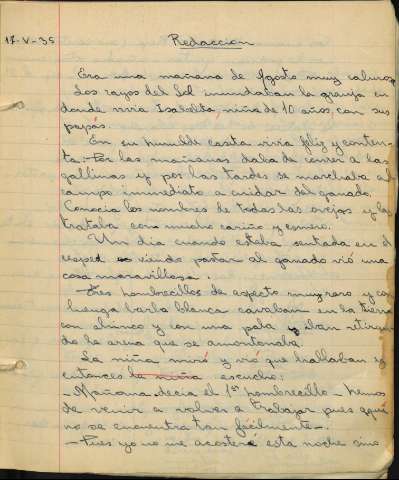 17-V-35
Redacción
Era una mañana de Agosto muy caluros
Los rayos del Sol inundaban la granja en
donde vivía Isabelita, niña de 10 años, con sus
papás.
En su humilde casita vivía feliz y conten-
ta. Por las mañanas daba de comer a las
gallinas y por las tardes se marchaba al
campo inmediato a cuidar del ganado.
Conocía los nombres de todas las ovejas y las
trataba con mucho cariño y esmero.
Un día cuando estaba sentada en el
cesped viendo pastar al ganado vió una
cosa maravillosa.
Tres hombrecillos de aspecto muy raro y con
luenga barba blanca cavaban en la tierra
con ahinco y con una pala iban retiran-
do la arena que se amontonaba.
La niña miró y vió que hablaban y
entonces la niña escuchó:
- Mañana decía el 1er hombrecillo - hemos
de venir a volver a trabajar pues aquí
no se encuentra tan fácilmente -.
- Pues yo no me acostaré esta noche sino